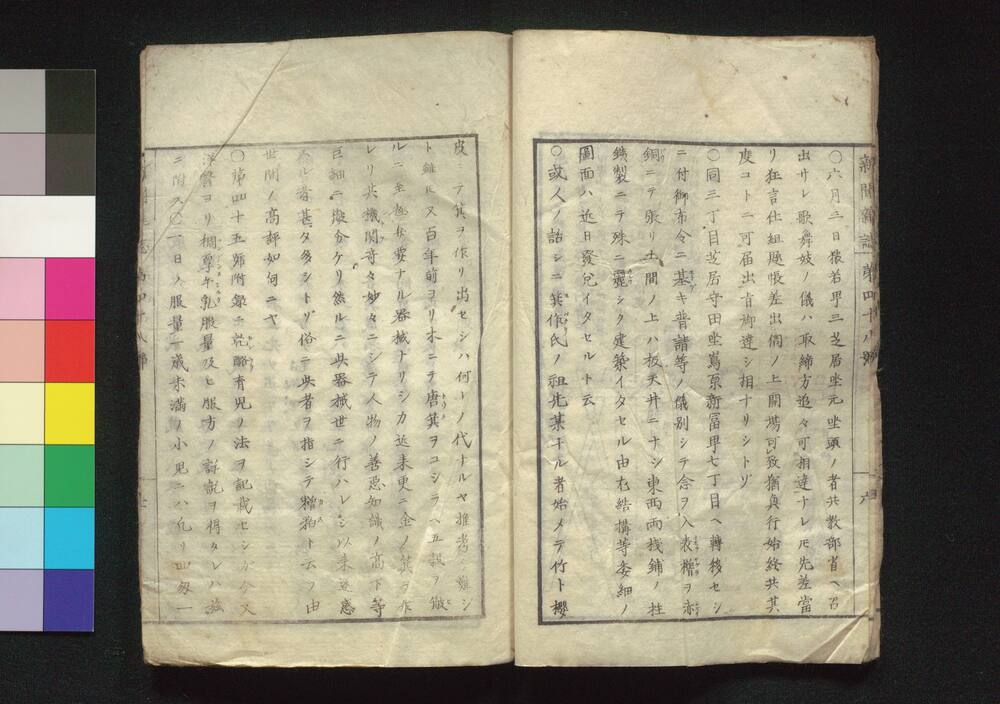 新聞雜誌 第四十八號 六
○六月三日猿若甼三芝居座元座頭ノ者共教部省ヘ召
出サレ歌舞妓ノ儀ハ取締方追々可相達ナレ𪜈先差當
リ狂言仕組題帳差出伺ノ上開場可致猶眞行始終共其
度コトニ可届出旨御達シ相ナリシトゾ
○同三丁目芝居守田座嶌原新冨甼七丁目ヘ轉移セシ
ニ付御布令ニ基キ普請等ノ儀別シテ念ヲ入表櫓ヲ赤
銅ニテ張リ土間ノ上ハ板天井ニナシ東西両棧鋪ノ柱
鐵製ニテ殊ニ麗シク建築イタセル由尤結構等委細ノ
圖面ハ近日發兌イタセルト云
○或人ノ話シニ箕作氏ノ祖先某ナル者始メテ竹ト櫻
皮 テ箕ヲ作リ出セシハ何レノ代ナルヤ推考シ難シ
ト雖𪜈又百年前ヨリ木ニテ唐箕ヲコシラヘ五穀ヲ
ルニ至極必要ナル器械ナリシカ近来更ニ金ノ箕ヲ作
レリ其機関奇々妙々ニシテ人物ノ善惡知識ノ高下等
巨細ニ撥分ケケリ然ルニ此器械世ニ行ハレシ以来迷惑
ル者甚タ多シトゾ俗ニ此者ヲ指シテ糟粕ト云フ由
世間ノ高評如何ニヤ
○第四十五號附録ニ乾酪育児ノ法ヲ記載セシガ今又
洋醫ヨリ 乳服量及ヒ服方ノ詳説ヲ得タレハ茲
ニ附ス○一日ノ服量一歳未満ノ小児ニハ凡リ四匁一